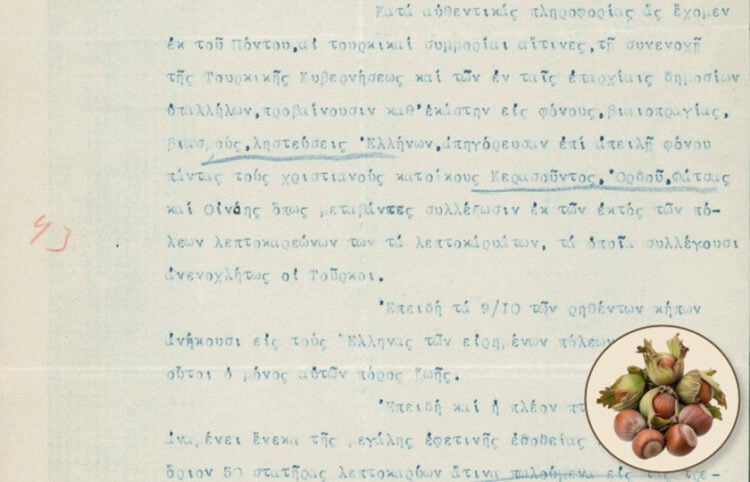 Κατά αὐθεντικάς πληροφορίας ἅς ἔχομεν
ἐκ τοῦ Πόντου,αἱ τουρκικαί συμμορίαι αἵτινες,τῇ συνενοχῇ
τῆς Τουρκικῆς Κυβερνήσεως καί τῶν ἐν ταῖς ἐπαρχίαις δημοσίων
ὑπαλλήλων,προβαίνουσιν καθ'ἑκάστην εἰς φόνους,βιαιοπραγίας,
βιασμούς,ληστεύσεις Ἑλλήνων,ἀπηγόρευσαν ἐπί ἀπειλῇ φόνου
πάντας τούς χριστιανούς κατοίκους Κερασοῦντος,Ὀρδοῦ,Φάτσας
καί Οἰνόης ὅπως μεταβάντες συλλέξωσιν ἐκ τῶν ἐκτός τῶν πό-
λεων λεπτοκαρεώνων των τά λεπτοκάρυάτων, τά ὁποῖα συλλέγουσι
ἀνενοχλήτως οἱ Τοῦρκοι.
Ἐπειδή τά 9/10 τῶν ρηθέντων κήπων
ἀνήκουσι εἰς τούς Ἕλληνας τῶν εἰρημένων πόλεων
οὗτοι ὁ μόνος αὐτῶν πόρος ζωῆς.
Ἐπειδή καί ἡ πλέον
ἀναμένει ἕνεκα τῆς μεγάλης ἐφετινῆς
δριον 50 στατῆρας λεπτοκαρύων ἅτινα πωλούμενα εἰς τάς τρε-
43